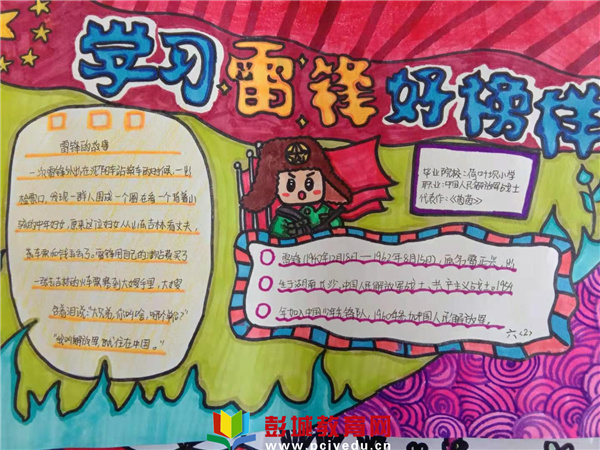 学习雷锋好榜样
雷锋的故事
一次雷锋外出在沈阳车站换车的时候,一出
检票口,发现一群人围成一个圈在看一个背着小
孩的中年妇女,原来这位妇女从山东去吉林看丈夫,
车票和钱丢了。雷锋用自己的津贴费买了
一张去吉林的火车票塞到大嫂手里,大嫂
含着泪说:"大兄弟,你叫啥,哪个单位?"
"我叫解放军,就住在中国。"
毕业院校:荷叶坝小学
职业:中国人民解放军战士
代表作:《
雷锋(1940年12月18日—1962年8月15日),原名雷正兴,出
生于湖南长沙,中国人民解放军战士,共产主义战士。1954
年加入中国少年先锋队,1960年参加中国人民解放军。
六(2)
彭城教育网
www.pcjyedu.cn